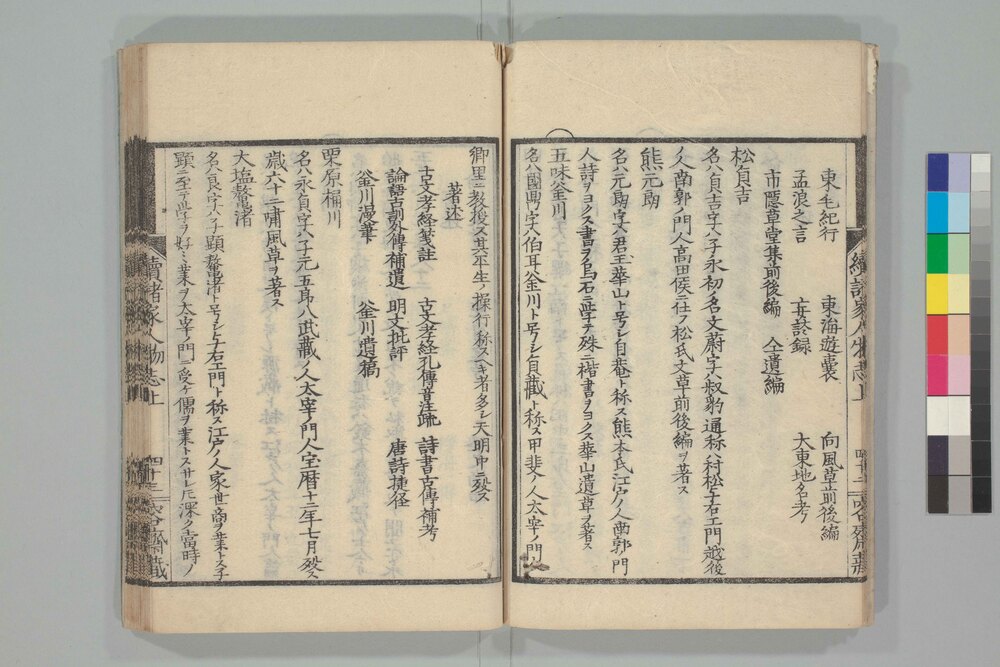 東毛紀行 東海遊嚢 向風草前後編
孟浪之言 妄語録 大東地名考
市隱草堂集前後編 仝遺編
松貞吉
名ハ貞吉字ハ子永初ノ名文蔚字ハ叔豹通称ハ村松子右エ門越後
ノ人南郭ノ門人高田侯ニ仕フ松氏文草前後編ヲ著ス
熊元朗
名ハ元朗字ハ君玉華山ト号シ自菴ト称ス熊本氏江戸ノ人南郭門
人詩ヲヨクス書ヲ烏石ニ學テ殊ニ楷書ヲヨクス華山遺草ヲ著ス
五味釜川
名ハ國鼎字ハ伯耳釜川ト号シ貞藏ト称ス甲斐ノ人太宰ノ門人
郷里ニ教授ス其平生ノ操行称スヘキ者多シ天明中ニ殁ス
著述
古文孝経箋註 古文孝経孔傳音注疏 詩書古傳補考
論語古訓外傳補遺 明文批評 唐詩捷径
釜川漫筆 釜川遺稿
栗原桶川
名ハ永貞字ハ子元五郎八武藏ノ人太宰ノ門人宝暦十二年七月殁ス
歳六十二嘯風草ヲ著ス
大塩鼇渚
名ハ良字ハ子顕鼇渚ト号シ与右エ門ト称ス江戸ノ人家世商ヲ業トス子
顕ニ至テ學ヲ好ミ業ヲ太宰ノ門ニ受ケ儒ヲ業トスサレ𪜈深ク當時ノ
續諸家人物志上 四十三